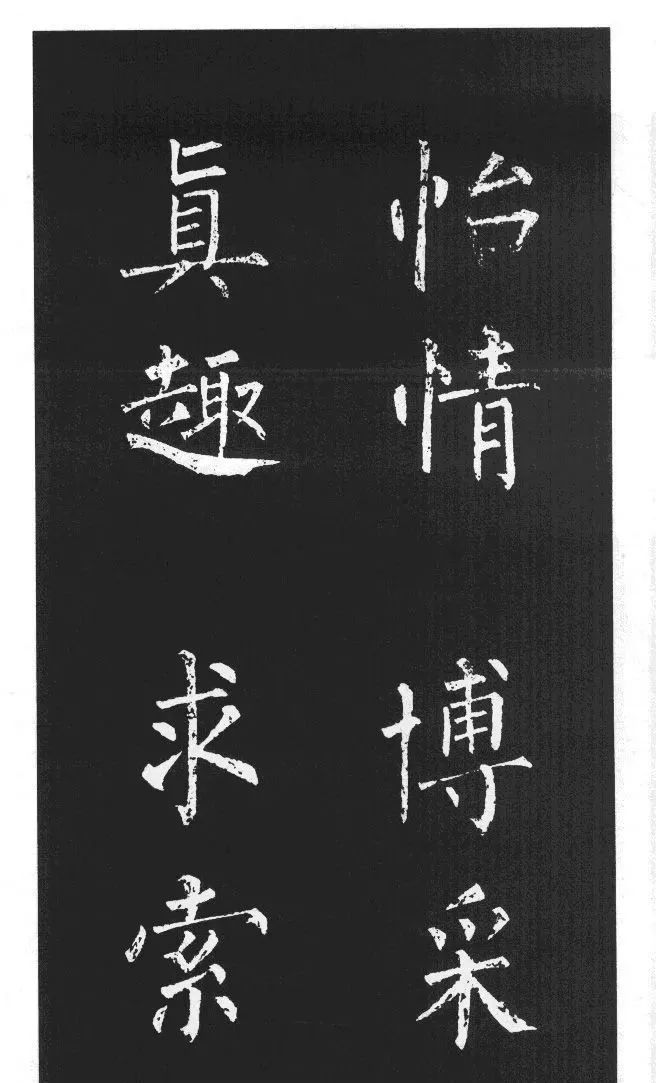 怡情博采
眞趣求索